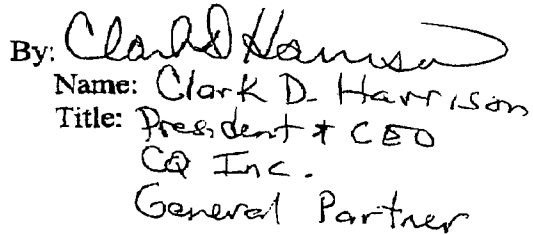 By: Clark D Harrison
Name: Clark D. Harrison
Title: President & CEO
CQ Inc.
General Partner